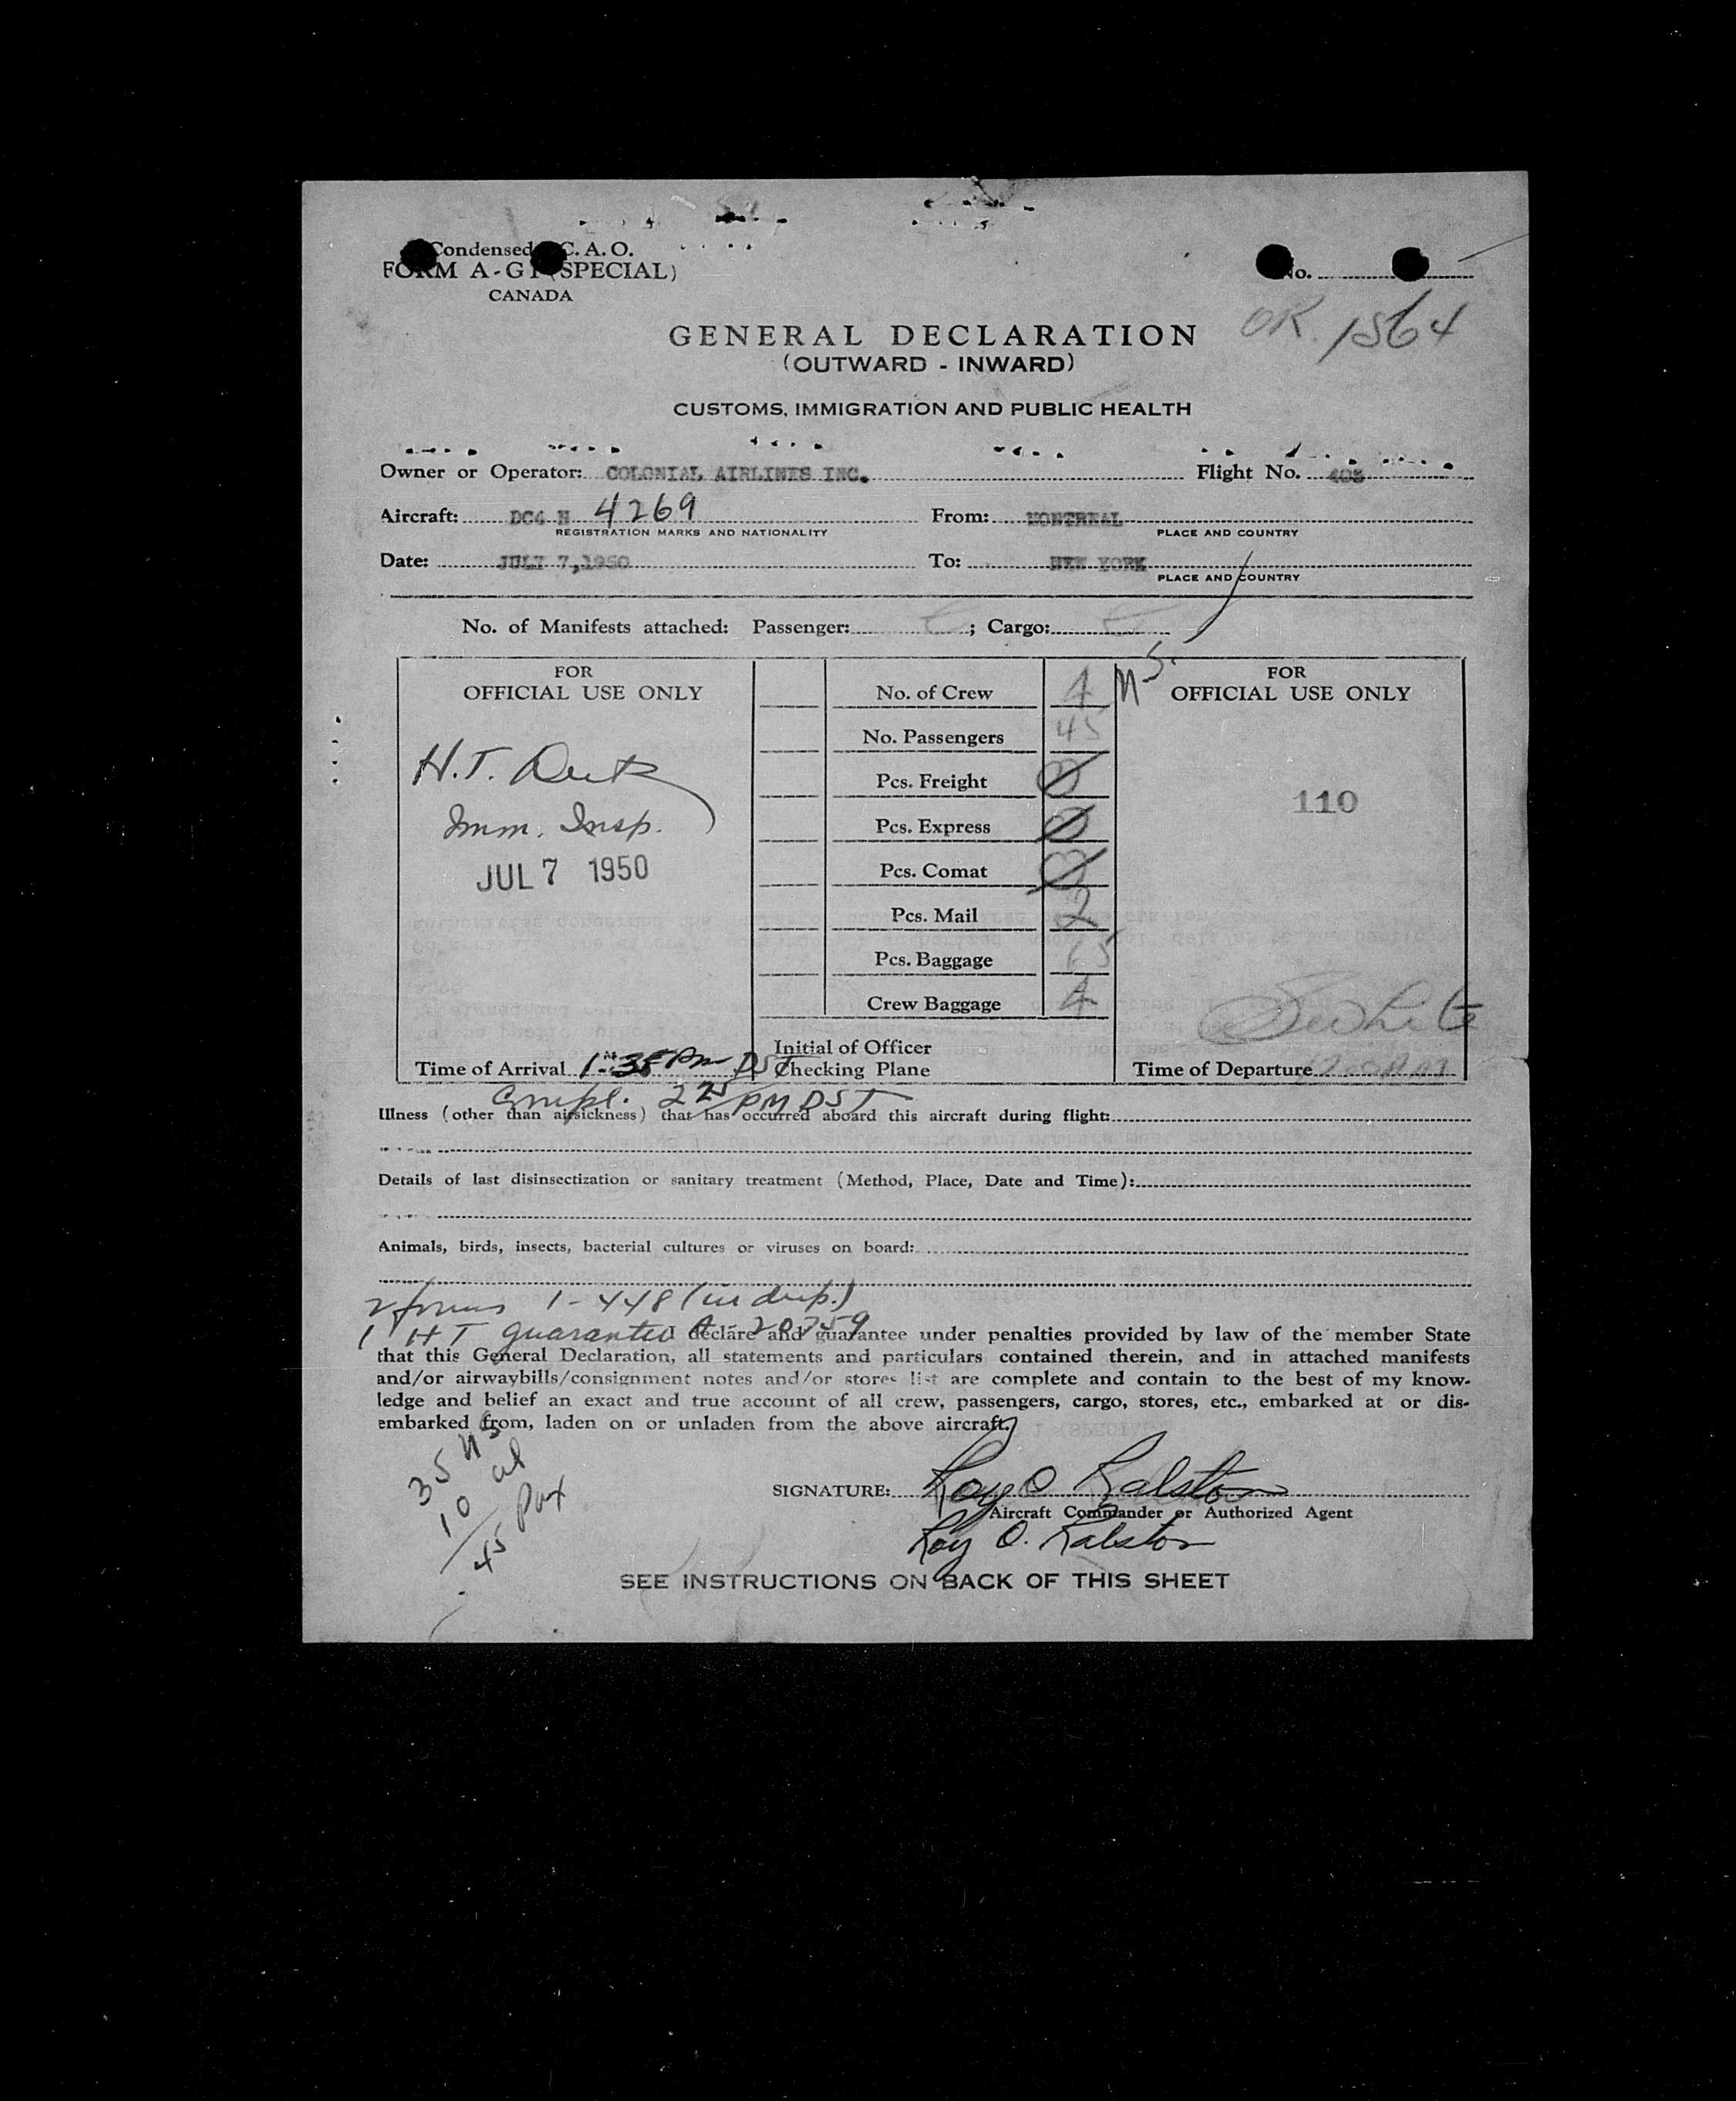 Condensed C. A. O.
FORM A-G1 (SPECIAL)
CANADA
No.
OK 1564
GENERAL DECLARATION
(OUTWARD - INWARD)
CUSTOMS, IMMIGRATION AND PUBLIC HEALTH
Owner or Operator: COLONIAL AIRLINES INC. Flight No. 403
Aircraft: DC4 N 4269 From: MONTREAL
REGISTRATION MARKS AND NATIONALITY PLACE AND COUNTRY
Date: JULY 7,1950 To: NEW YORK
PLACE AND COUNTRY
No. of Manifests attached: Passenger: ; Cargo:
FOR
OFFICIAL USE ONLY
H.T.
Imm. Insp.
JUL 7 1950
Time of Arrival 1:35 PM DST
Compl. 2 25 PM DST
No. of Crew 4
No. Passengers 45
Pcs. Freight 0
Pcs. Express 0
Pcs. Comat 0
Pcs. Mail 2
Pcs. Baggage 65
Crew Baggage 4
Initial of Officer
Checking Plane
FOR
OFFICIAL USE ONLY
110
White
Time of Departure
Illness (other than airsickness) that has occurred aboard this aircraft during flight:
Details of last disinsectization or sanitary treatment (Method, Place, Date and Time):
Animals, birds, insects, bacterial cultures or viruses on board:
2 forms 1-448 (in dup.)
1 HT guaranteed A-20759
declare and guarantee under penalties provided by law of the member State
that this General Declaration, all statements and particulars contained therein, and in attached manifests
and/or airwaybills/consignment notes and/or stores list are complete and contain to the best of my know-
ledge and belief an exact and true account of all crew, passengers, cargo, stores, etc., embarked at or dis-
embarked from, laden on or unladen from the above aircraft.
35 US
10 al
45 Pax
SIGNATURE: Roy O Ralston
Aircraft Commander or Authorized Agent
Roy O. Ralston
SEE INSTRUCTIONS ON BACK OF THIS SHEET